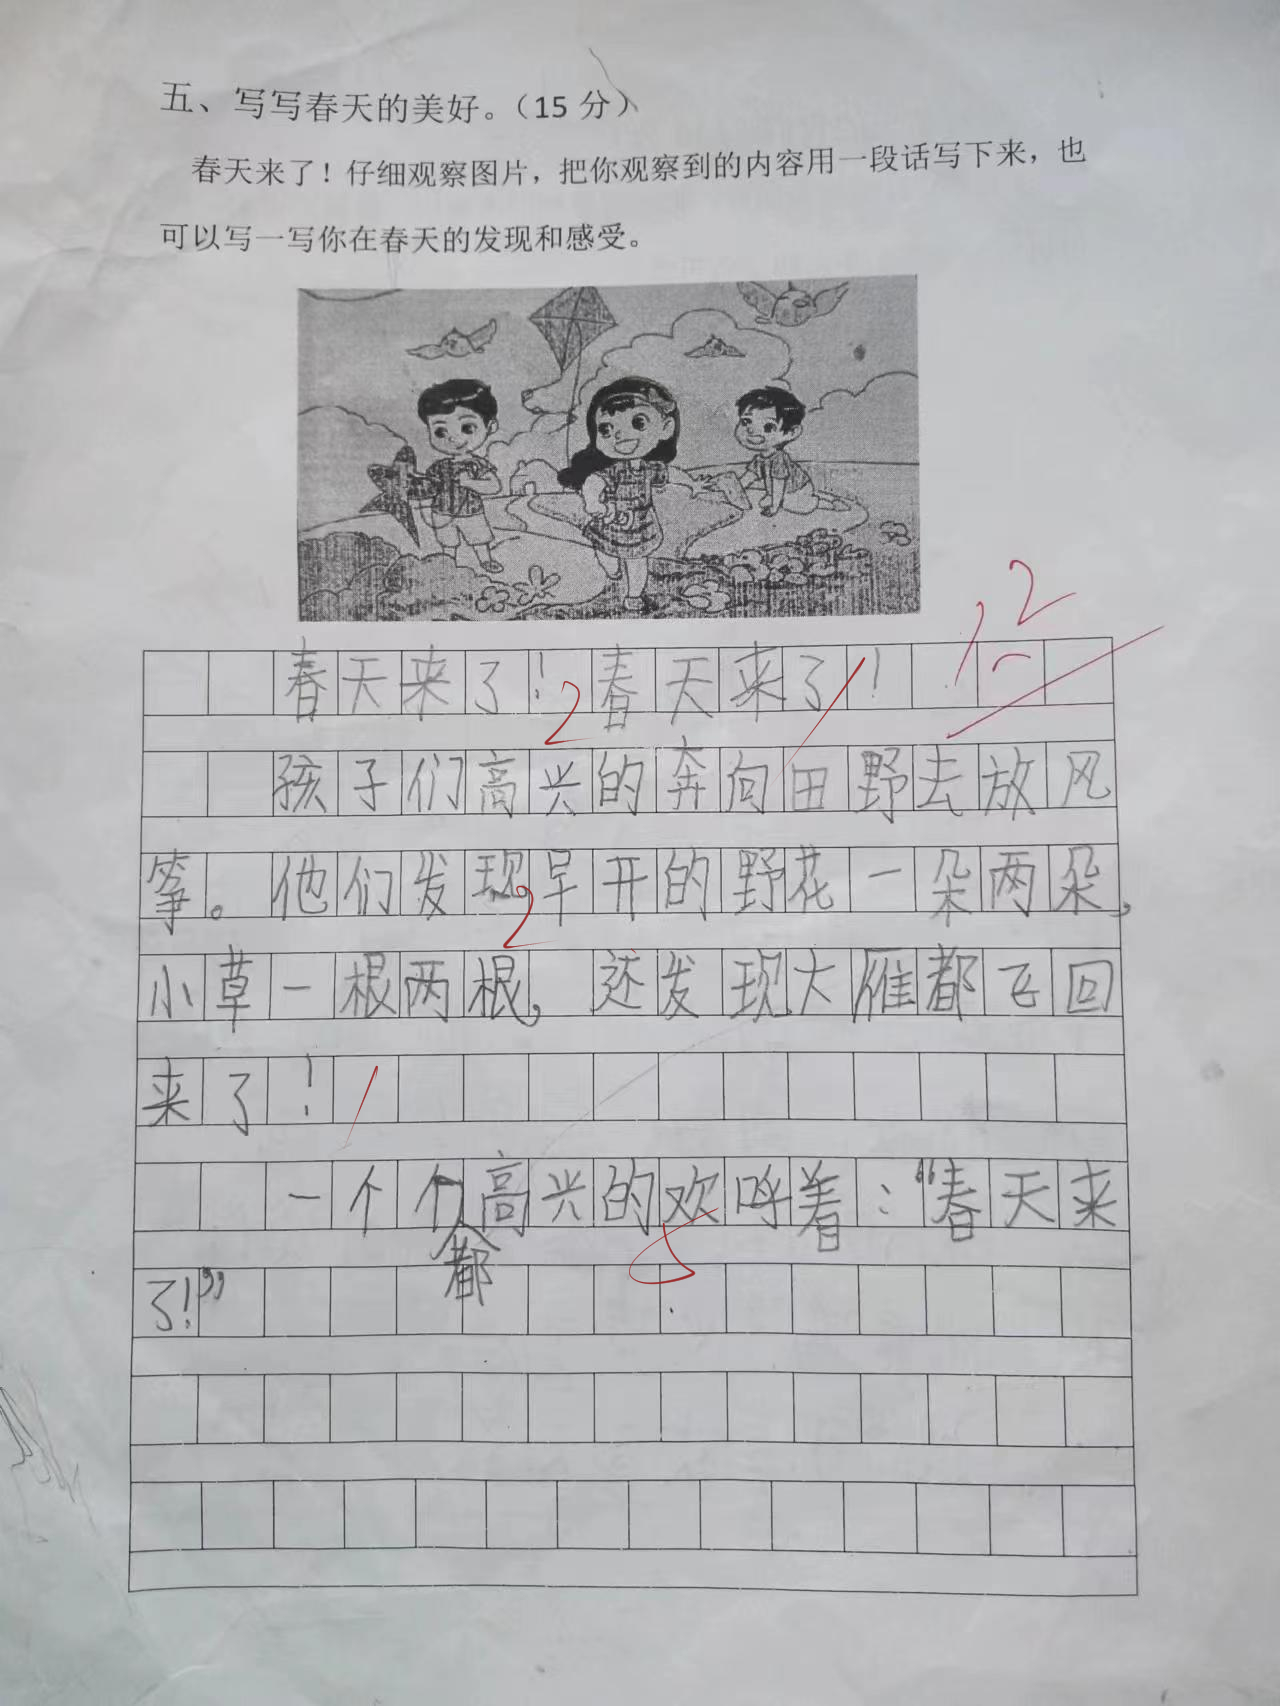 五、写写春天的美好。（15 分）
春天来了！仔细观察图片，把你观察到的内容用一段话写下来，也
可以写一写你在春天的发现和感受。
12
春天来了！春天来了！
2
孩子们高兴的奔向田野去放风
筝。他们发现早开的野花一朵两朵，
2
小草一根两根，还发现大雁都飞回
来了！
一个个都高兴的欢呼着：“春天来
5
了！”